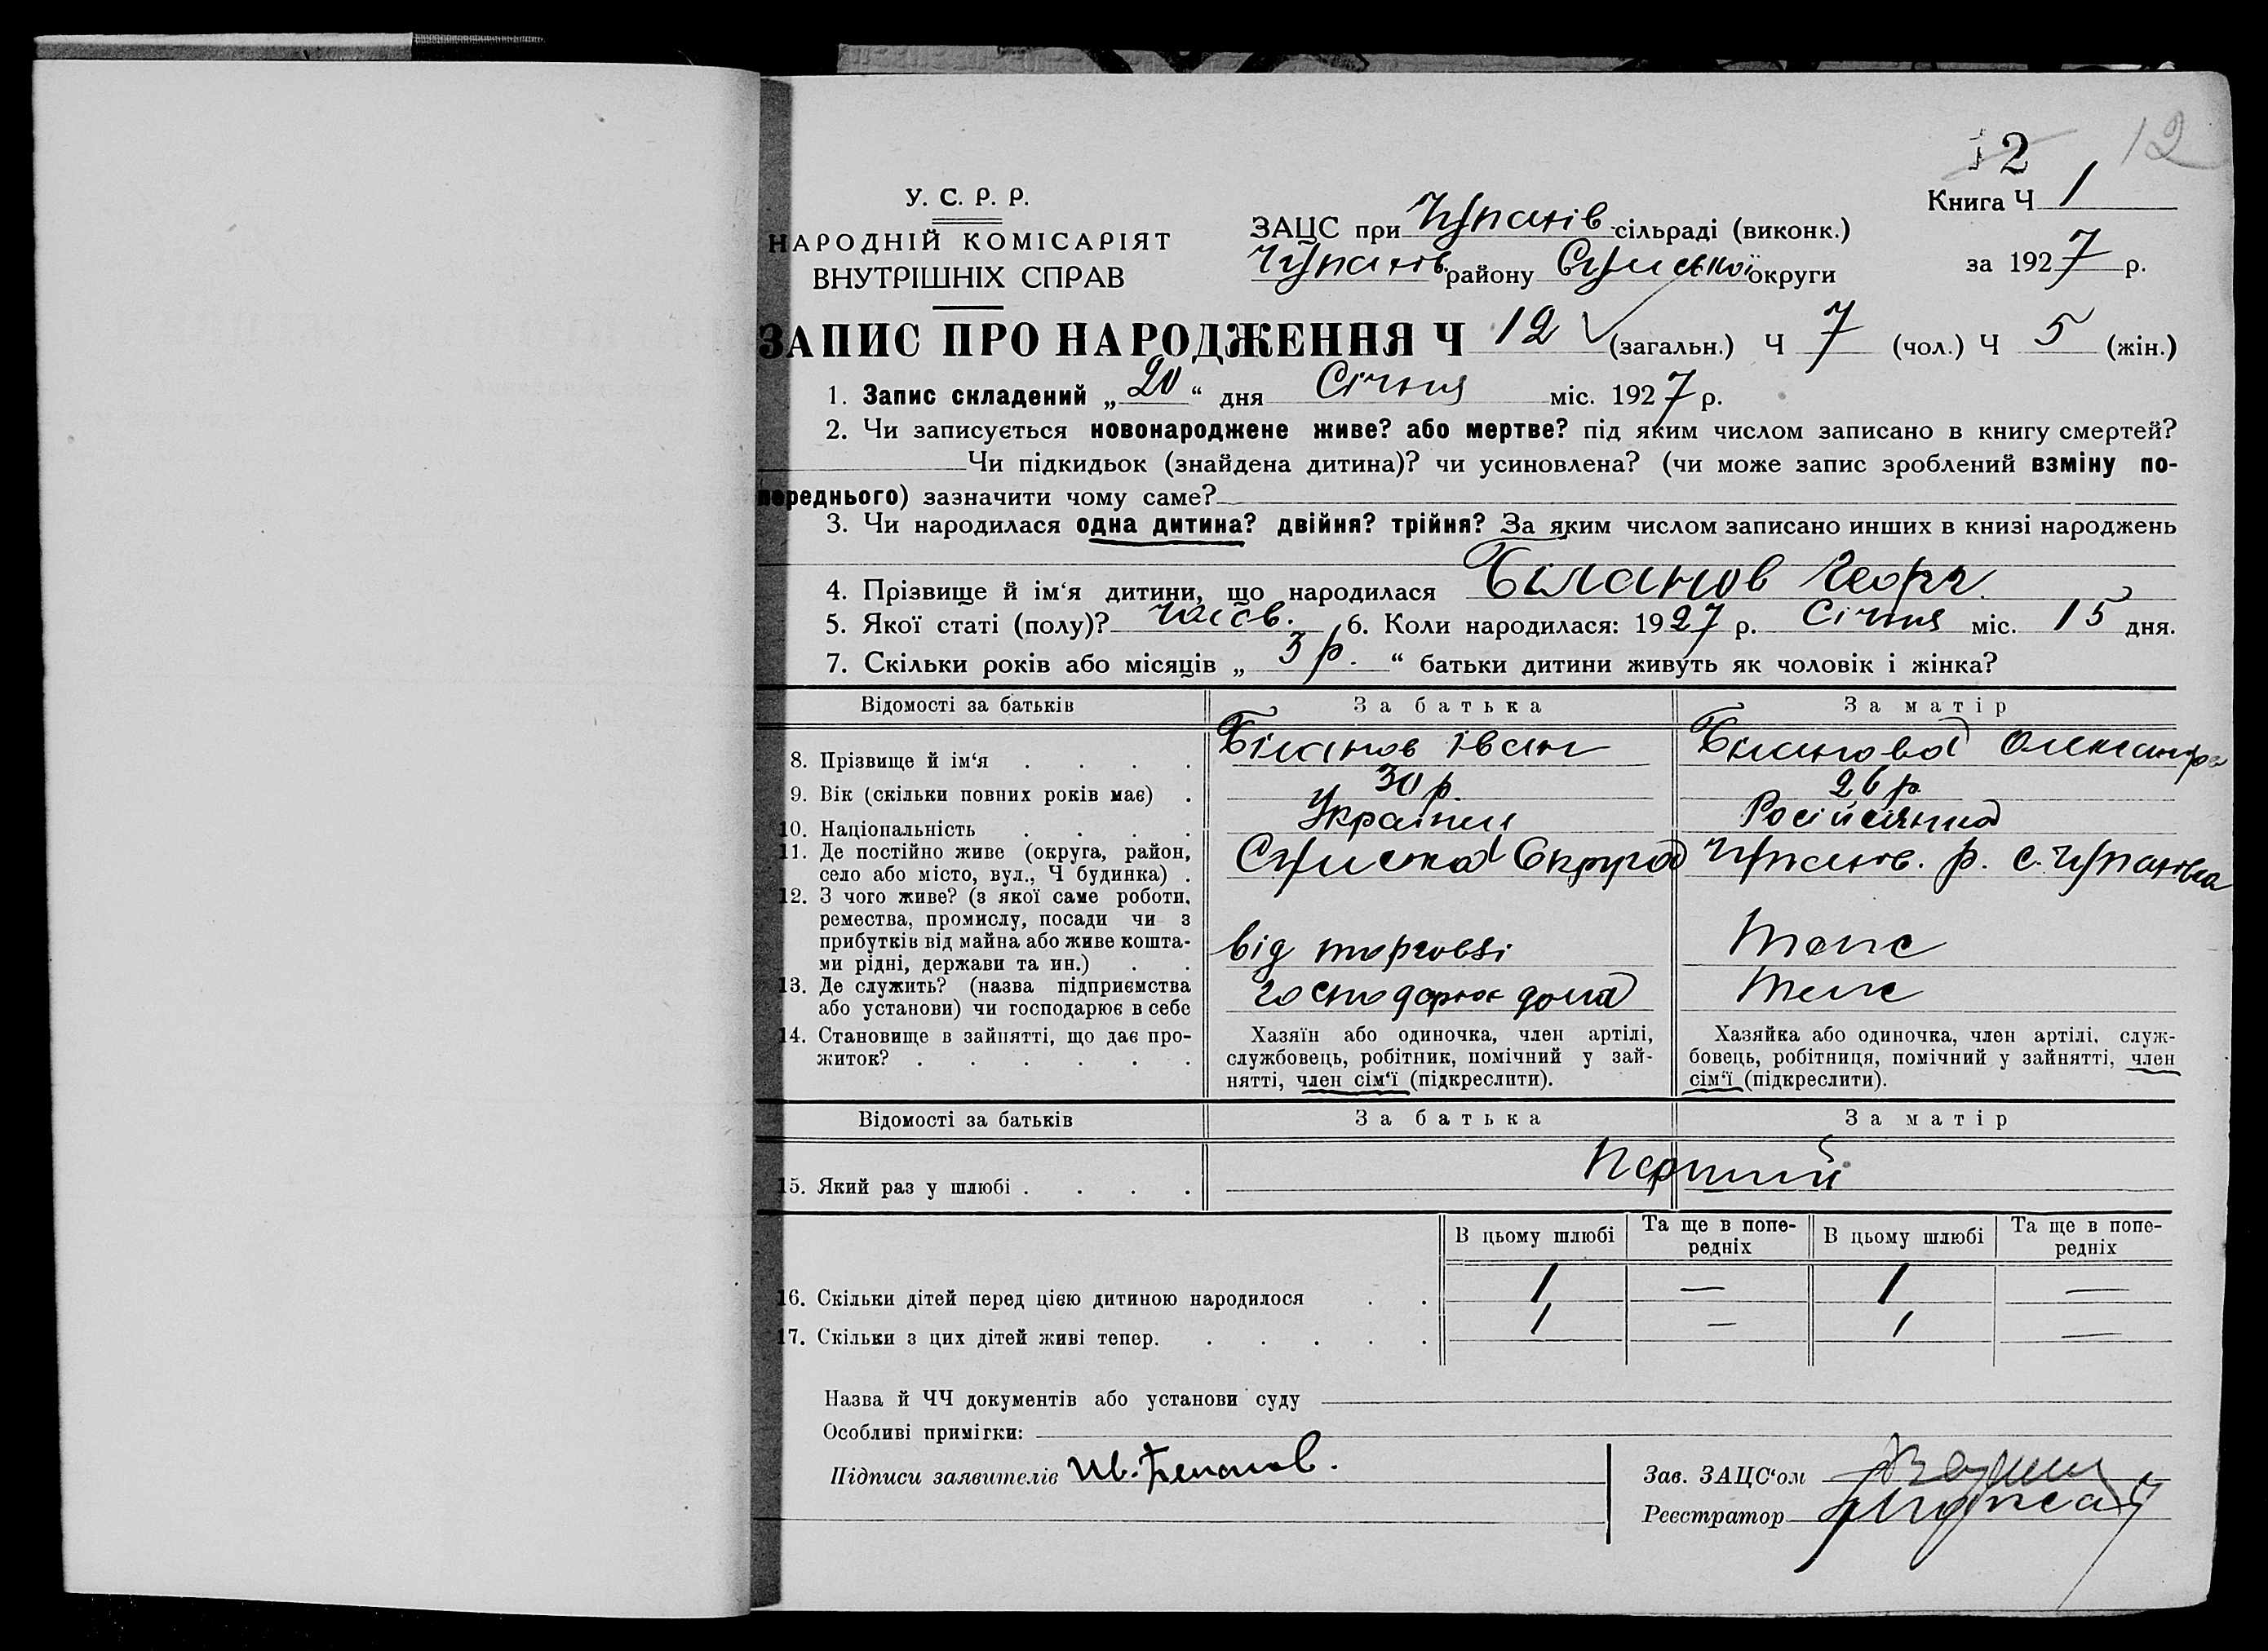 12 12
Книга Ч 1
У. С. Р. Р.
НАРОДНІЙ КОМІСАРІЯТ
ВНУТРІШНІХ СПРАВ
ЗАЦС при Чупахів сільраді (виконк.)
Чупахів. району Сумської округи
за 1927 р.
ЗАПИС ПРО НАРОДЖЕННЯ Ч 12 (загальн.) Ч 7 (чол.) Ч 5 (жін.)
1. Запис складений „20“ дня Січня міс. 1927 р.
2. Чи записується новонароджене живе? або мертве? під яким числом записано в книгу смертей?
Чи підкидьок (знайдена дитина)? чи усиновлена? (чи може запис зроблений взміну по-
переднього) зазначити чому саме?
3. Чи народилася одна дитина? двійня? трійня? За яким числом записано инших в книзі народжень
4. Прізвище й ім‘я дитини, що народилася Біланов Георг.
5. Якої статі (полу)? 6. Коли народилася: 1927 р. Січня міс. 15 дня.
7. Скільки років або місяців „3 р.“ батьки дитини живуть як чоловік і жінка?
Відомості за батьків За батька За матір
8. Прізвище й ім‘я . . . . Біланов Іван Біланова Олександра
9. Вік (скільки повних років має) . 30 р. 26 р.
10. Національність . . . . Українец Росіянка
11. Де постійно живе (округа, район,
село або місто, вул., Ч будинка) . Сумска Округа Чупахів. р. с. Чупахівка
12. З чого живе? (з якої саме роботи,
ремества, промислу, посади чи з
прибутків від майна або живе кошта-
ми рідні, держави та ин.) . . від торговлі тоже
13. Де служить? (назва підприємства
або установи) чи господарює в себе господарює дома тоже
14. Становище в зайнятті, що дає про-
житок? . . . . . .
Хазяїн або одиночка, член артілі,
службовець, робітник, помічний у зай-
нятті, член сім‘ї (підкреслити).
Хазяйка або одиночка, член артілі, служ-
бовець, робітниця, помічний у зайнятті, член
сім‘ї (підкреслити).
Відомості за батьків За батька За матір
15. Який раз у шлюбі . . . . Перший
В цьому шлюбі Та ще в попе-
редніх В цьому шлюбі Та ще в попе-
редніх
16. Скільки дітей перед цією дитиною народилося . . 1 — 1 —
17. Скільки з цих дітей живі тепер. . . . . . 1 — 1 —
Назва й ЧЧ документів або установи суду
Особливі примітки:
Підписи заявителів Ив. Біланов.
Зав. ЗАЦС‘ом
Реєстратор